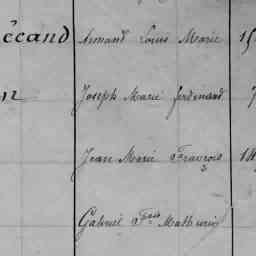 écand Armand Louis Marie 15
on Joseph Marie ferdinand 7
Jean Marie François 14
Gabriel Fois Mathurin